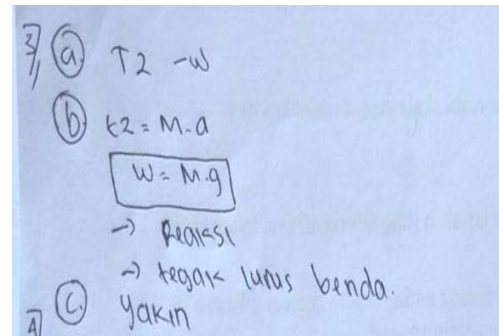 3/ (a) T2 -W
(b) t2 = M.a
W = M.g
→ Reaksi
→ tegak lurus benda.
(c) yakin
4